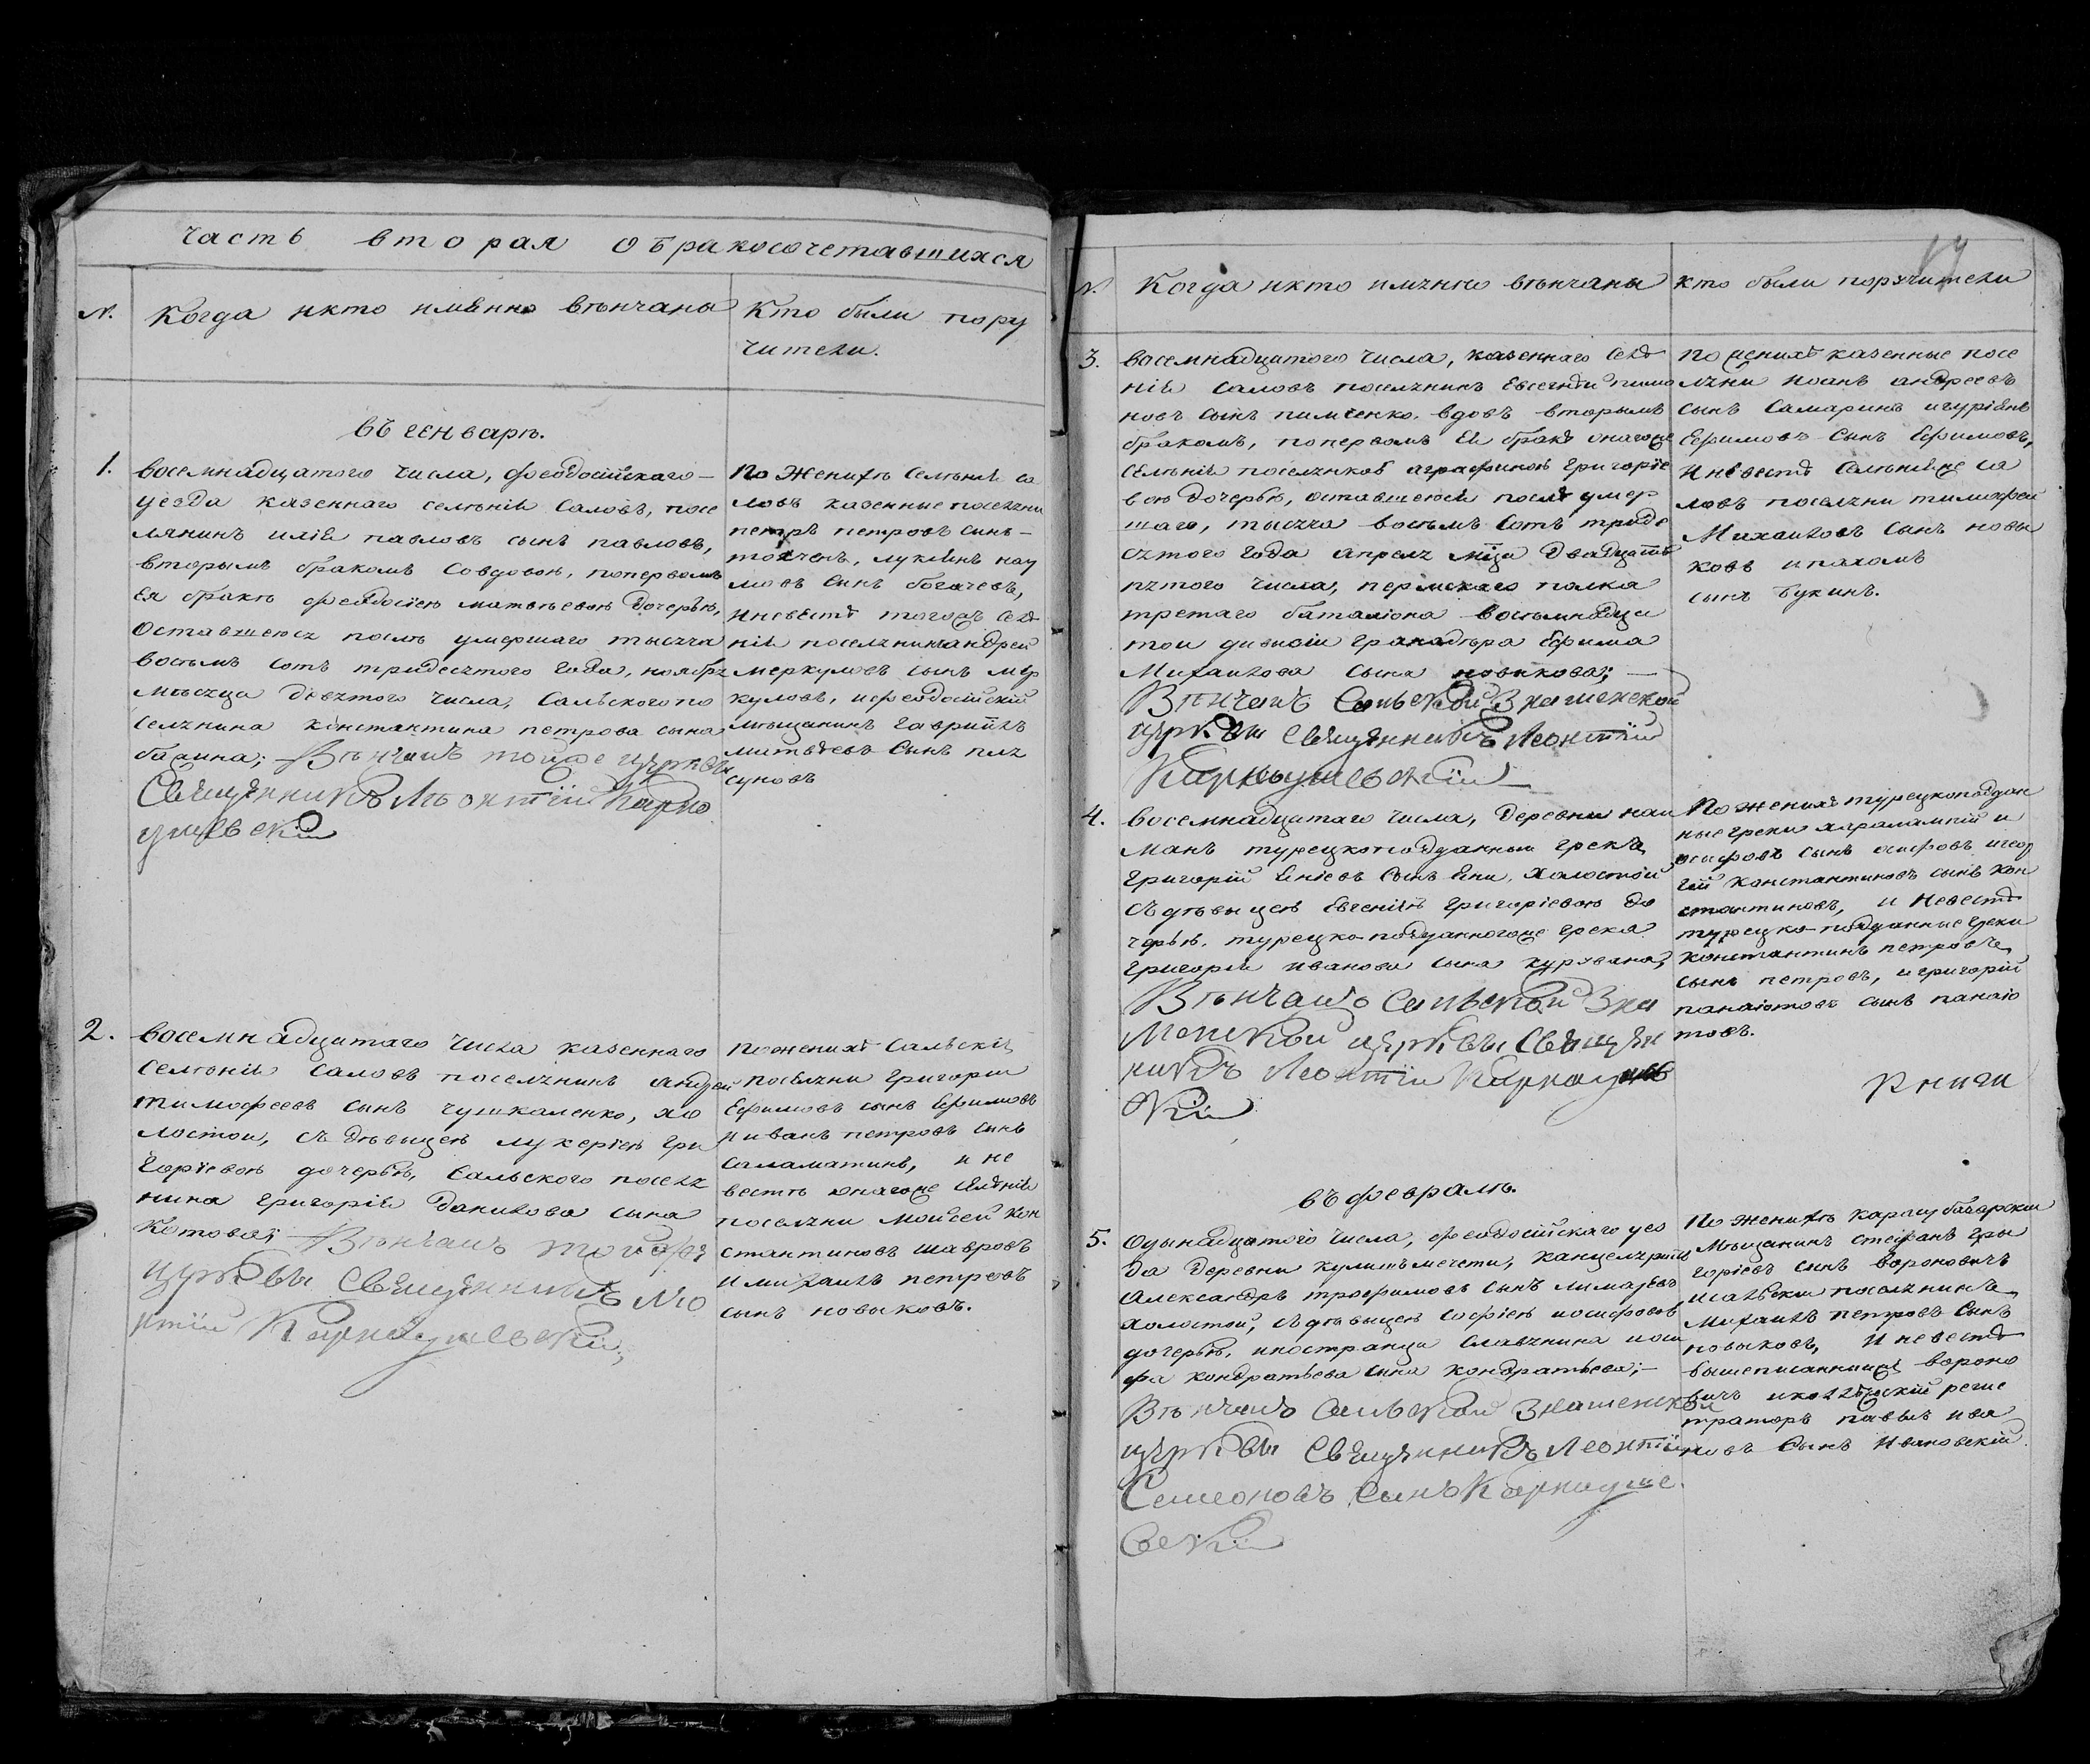 часть вторая о бракосочетавшихся
№. Когда икто имѣнно вѣнчаны
Кто были пору
чители.
въ генварѣ.
1. восемнадцатого числа, феодосійскаго –
уезда казеннаго селѣнія Саловъ, посе
лянинъ илія павловъ сынъ павловъ,
вторымъ бракомъ Совдовою, попервомъ
ея бракѣ феодосіею матвѣевою дочерью,
Оставшеюся послѣ умершаго тысяча
восьмъ сотъ тридесятого года, ноября
мѣсяца девятого числа, Сальского по
селянина константина петрова сына
бакина; – Вѣнчалъ тойже церкви
Священникъ Леонтій Карно
ушевскій
По Женихѣ Селѣнія са
ловъ казенные поселяни
петръ петровъ сынъ –
толченъ, лукіянъ нау
мовъ сынъ богачевъ,
инвестѣ тогожъ селѣ
нія поселянинъ андрей
меркуловъ сынъ мер
куловъ, ифеодосійскій
мѣщанинъ гавріилъ
матвѣевъ сынъ пля
суновъ
2. восемнадцатаго числа казеннаго
селѣнія саловъ поселянинъ андрей
тимофеевъ сынъ чушкаленко, хо
лостои, съ дѣвицею лукеріею гри
горіевою дочерью, сальского поселя
нина григорія данилова сына
котова; Вѣнчалъ тойже
церкви Священникъ Лео
нтій Карноушевскій;
поженихѣ сальскія
поселяни григорій
Ефимовъ сынъ Ефимовъ
и иванъ петровъ сынъ
саламатинъ, и не
вестѣ онагоже селѣнія
поселяни Моисей кон
стантиновъ шавровъ
и михаилъ петровъ
сынъ новиковъ.
№. Когда икто имянно вѣнчаны
кто были поручители
3. восемнадцатого числа, казеннаго селѣ
нія саловъ поселянинъ Евсегнѣи пимо
новъ сынъ пимченко, вдовъ вторымъ
бракомъ, попервомъ ея бракѣ онагоже
сѣлѣнія поселянкою аграфиною григоріе
вою дочерью, оставшеюся послѣ умер
шаго, тысяча восьмъ сотъ триде
сятого года апреля мца двадцать
пятого числа, пермскаго полка
третаго баталіона восьмнадца
тои дивизіи гранадѣра Ефима
Михаилова сына новикова; –
Вѣнчалъ Сальской Знаменской
церкви Священникъ Леонтій
Карноушевскій –
по женихѣ казенные посе
ляни иоанъ андреевъ
сынъ самаринъ игуріянъ
Ефимовъ сынъ Ефимовъ,
инвестѣ селѣнияже са
ловъ поселяни тимофей
Михаиловъ сынъ новы
ковъ ипахомъ
сынъ букинъ.
4. восемнадцатаго числа, деревни наи
манъ турецкоподданныи грекъ
григорій Еніевъ сынъ Ени, холостой
съ дѣвицею Евгеніею григоріевою до
черью, турецко подданногоже грека
григорія иванова сына курувана,
Вѣнчалъ Сальской Зна
менской церкви Священ
никъ Леонтій Карноушев
скій
По женихѣ турецкоподдан
ные греки харалампій и
осифовъ сынъ осифовъ игеор
гій константиновъ сынъ кон
стантиновъ, и невестѣ
турецко-подданные греки
константинъ петровъ
сынъ петровъ, и григорій
панаіотовъ сынъ панаіо
товъ.
книги
въ февралѣ.
5. одынадцатого числа, феодосійскаго уез
да деревни кулишъмечети, канцеляристъ
Александръ трофимовъ сынъ лимазевъ
холостой, съ дѣвицею софіею иосифовою
дочерью, иностранца славянина иоси
фа кондратьева сына кондратьева; –
Вѣнчалъ Сальской Знаменской
церкви Священникъ Леонтій
Семеоновъ Сынъ Карноуше
вскій
По женихѣ карасубазарскій
мѣщанинъ стефанъ гри
горіевъ сынъ вороновичъ
исальски поселянинъ
Михаилъ петровъ сынъ
новыковъ, И невестѣ
вышеписанныйже вороно
вичъ иколлежскій регис
траторъ павелъ ива
новъ сынъ ивановскій.